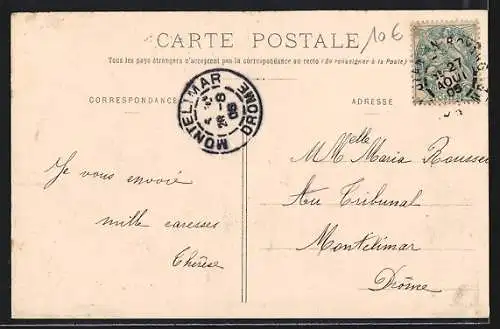 106
CARTE POSTALE
Tous les pays étrangers n'acceptent pas la correspondance au recto (Se renseigner à la Poste)
CORRESPONDANCE
ADRESSE
MONTELIMAR
DROME
28 - 8
05
27
AOUT
05
Je vous envoie
mille caresses
Thérèse
Melle Maria Roussea
Au Tribunal
Montélimar
Drôme